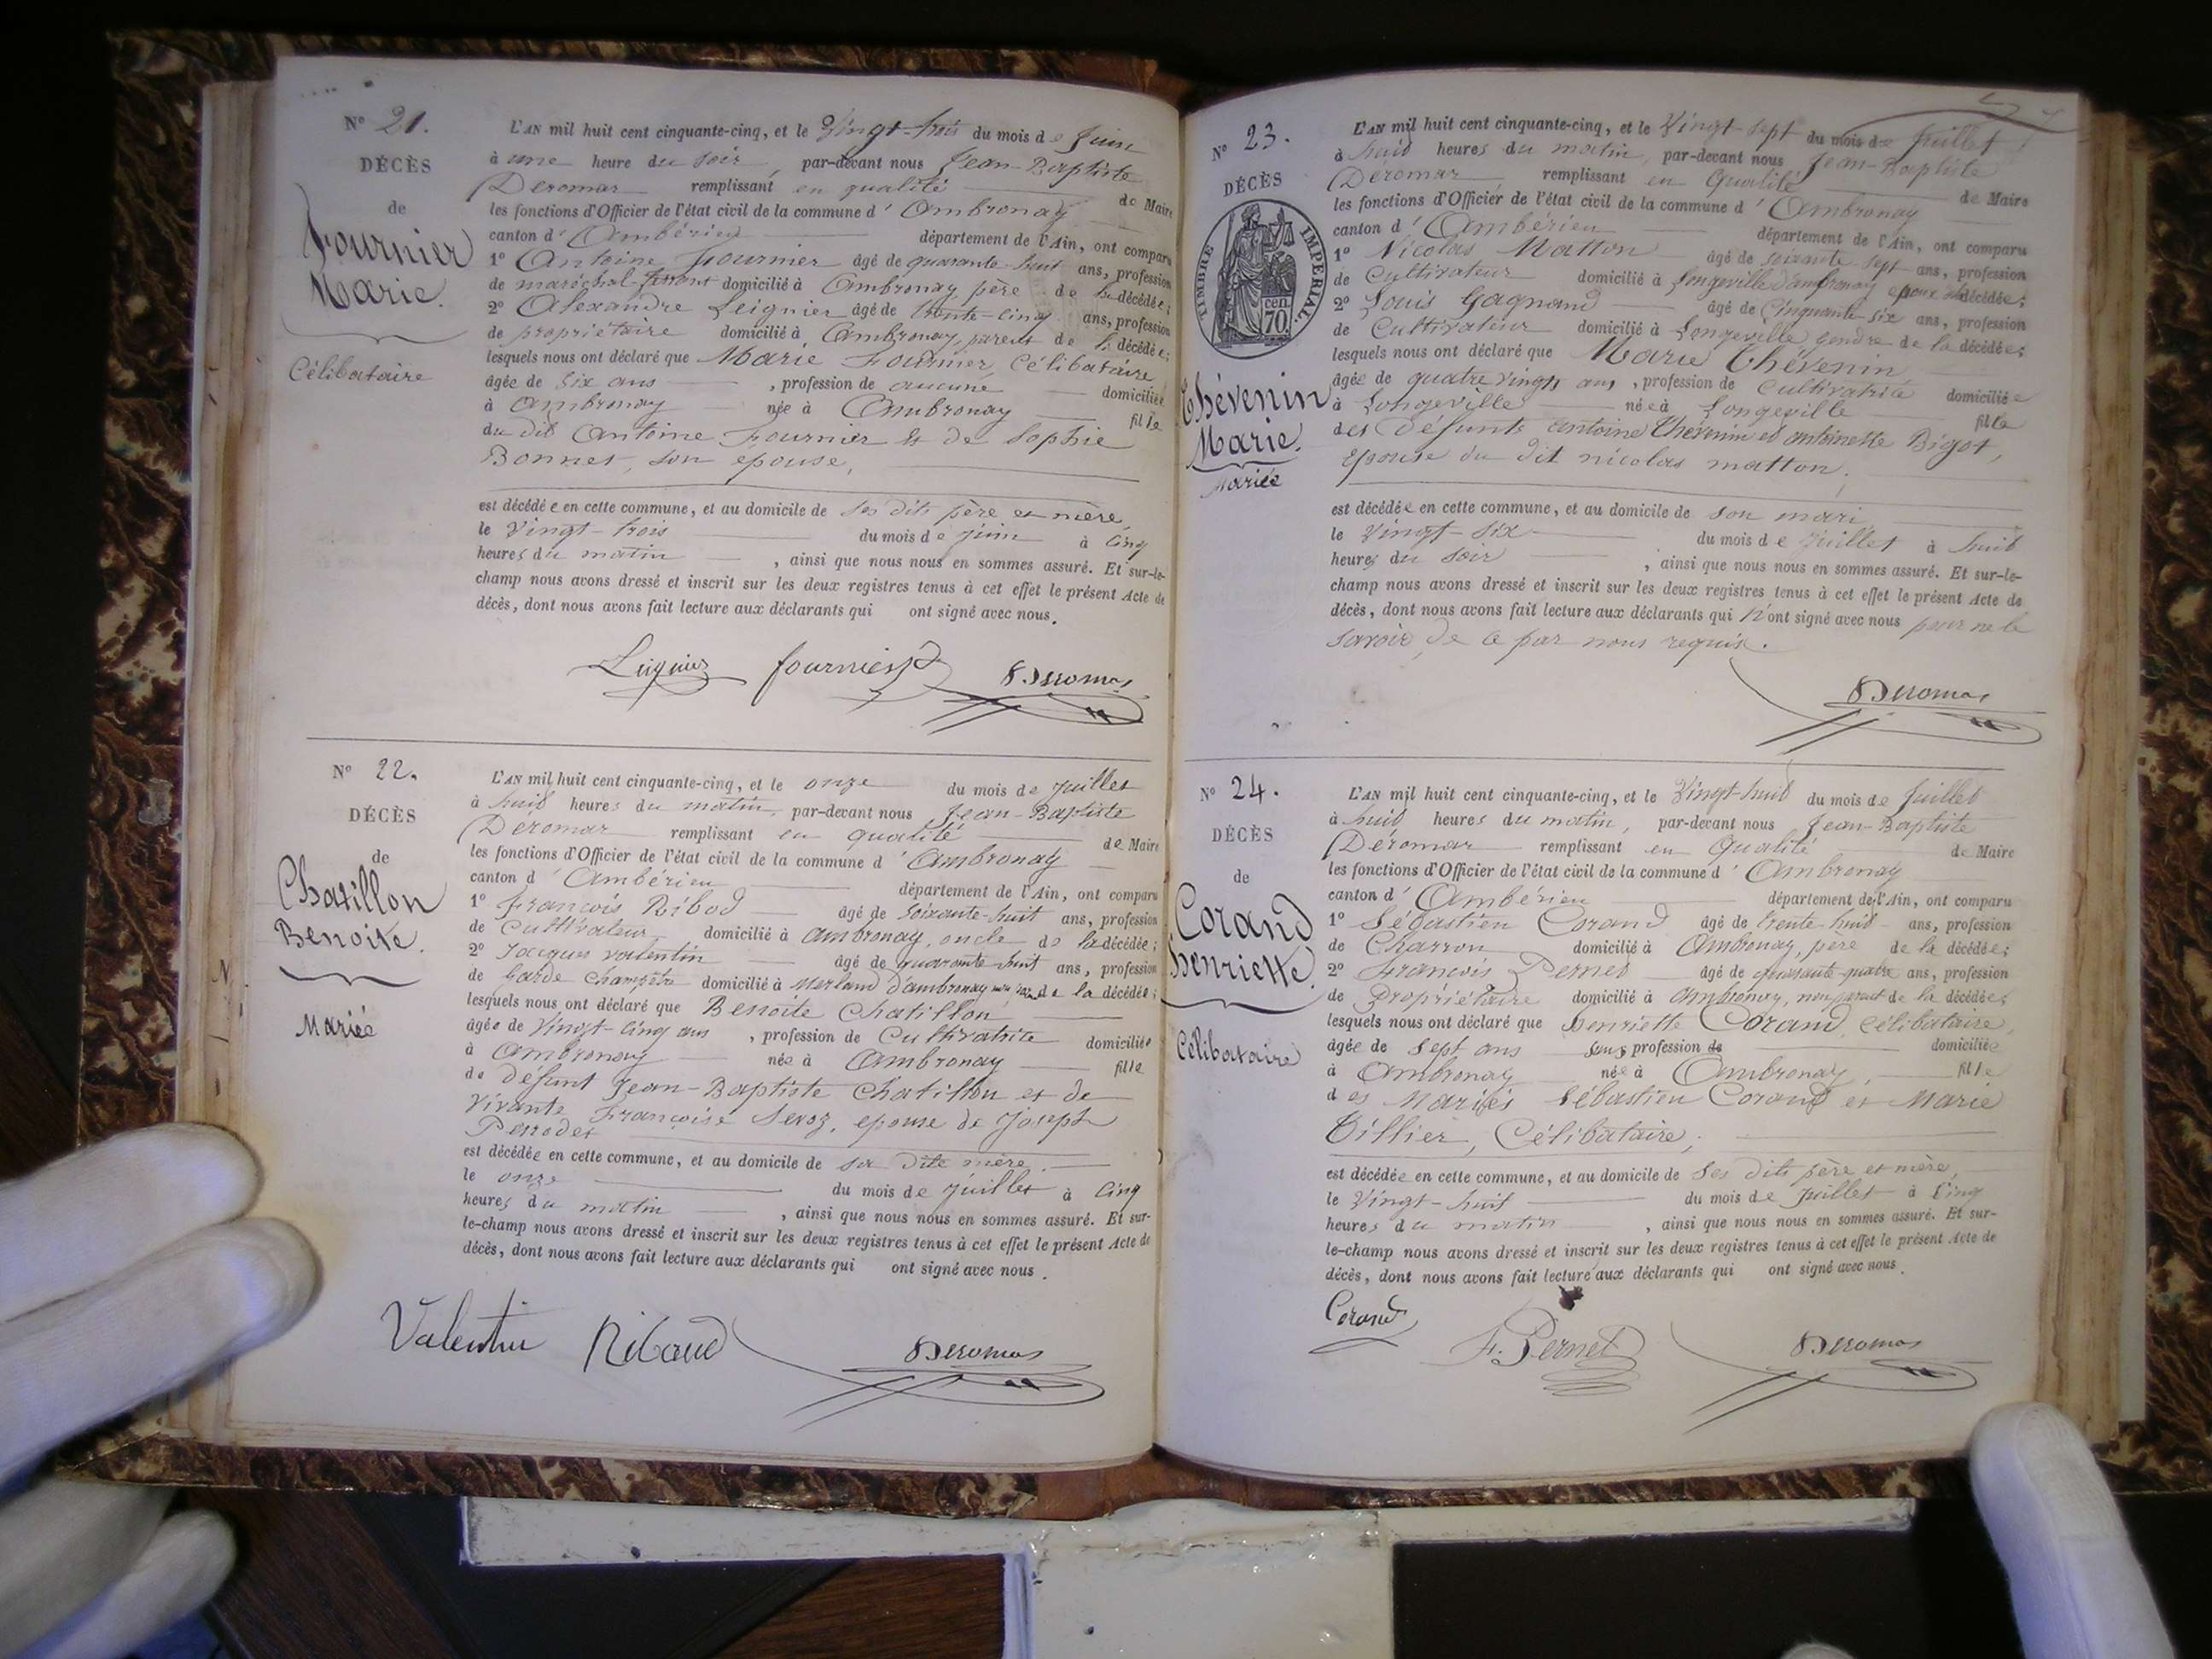 N° 21.
DÉCÈS
de
Fournier
Marie.
Célibataire
L'AN mil huit cent cinquante-cinq, et le Vingt-trois du mois de Juin
à une heure du soir, par-devant nous Jean-Baptiste
Déromas remplissant en qualité de Maire
les fonctions d'Officier de l'état civil de la commune d'Ambronay
canton d'Ambérieu département de l'Ain, ont comparu
1° Antoine Fournier âgé de quarante-huit ans, profession
de maréchal-ferrant domicilié à Ambronay, père de la décédée;
2° Alexandre Leignier âgé de trente-cinq ans, profession
de propriétaire domicilié à Ambronay, parent de la décédée;
lesquels nous ont déclaré que Marie Fournier, Célibataire
âgée de Six ans, profession de aucune domiciliée
à Ambronay née à Ambronay fille
du dit Antoine Fournier et de Sophie
Bonnet, son epouse,
est décédée en cette commune, et au domicile de ses dits père et mère,
le Vingt-trois du mois de Juin à cinq
heures du matin, ainsi que nous nous en sommes assuré. Et sur-le-
champ nous avons dressé et inscrit sur les deux registres tenus à cet effet le présent Acte de
décès, dont nous avons fait lecture aux déclarants qui ont signé avec nous.
Leignier fournier Deromas
N° 22.
DÉCÈS
de
Chatillon
Benoite.
Mariée
L'AN mil huit cent cinquante-cinq, et le onze du mois de Juillet
à huit heures du matin, par-devant nous Jean-Baptiste
Déromas remplissant en qualité de Maire
les fonctions d'Officier de l'état civil de la commune d'Ambronay
canton d'Ambérieu département de l'Ain, ont comparu
1° François Ribod âgé de soixante-huit ans, profession
de cultivateur domicilié à Ambronay, oncle de la décédée;
2° Jacques valentin âgé de quarante-huit ans, profession
de Garde Champêtre domicilié à Merland d'ambronay de la décédée;
lesquels nous ont déclaré que Benoite Chatillon
âgée de Vingt-cinq ans, profession de Cultivatrice domiciliée
à Ambronay née à Ambronay fille
de défunt Jean-Baptiste Chatillon et de
vivante Françoise Servoz, epouse de Joseph
Perrodet
est décédée en cette commune, et au domicile de sa dite mère.
le onze du mois de Juillet à cinq
heures du matin, ainsi que nous nous en sommes assuré. Et sur-
le-champ nous avons dressé et inscrit sur les deux registres tenus à cet effet le présent Acte de
décès, dont nous avons fait lecture aux déclarants qui ont signé avec nous.
Valentin Ribaud Deromas
N° 23.
DÉCÈS
TIMBRE IMPÉRIAL.
70 cen.
Thévenin
Marie.
Mariée
L'AN mil huit cent cinquante-cinq, et le Vingt-Sept du mois de Juillet
à huit heures du matin, par-devant nous Jean-Baptiste
Déromas remplissant en Qualité de Maire
les fonctions d'Officier de l'état civil de la commune d'Ambronay
canton d'Ambérieu département de l'Ain, ont comparu
1° Nicolas Matton âgé de soixante sept ans, profession
de Cultivateur domicilié à Longeville d'ambronay epoux de la décédée;
2° Louis Gagnand âgé de Cinquante-Six ans, profession
de Cultivateur domicilié à Longeville gendre de la décédée;
lesquels nous ont déclaré que Marie Thévenin
âgée de quatre vingts ans, profession de Cultivatrice domiciliée
à Longeville née à Longeville fille
des défunts antoine Thévenin et antoinette Bigot,
épouse du dit nicolas matton.
est décédée en cette commune, et au domicile de son mari
le Vingt-Six du mois de Juillet à huit
heures du soir, ainsi que nous nous en sommes assuré. Et sur-le-
champ nous avons dressé et inscrit sur les deux registres tenus à cet effet le présent Acte de
décès, dont nous avons fait lecture aux déclarants qui N'ont signé avec nous pour ne le
savoir, de ce par nous requis.
Deromas
N° 24.
DÉCÈS
de
Corand
henriette.
Célibataire
L'AN mil huit cent cinquante-cinq, et le Vingt-huit du mois de Juillet
à huit heures du matin, par-devant nous Jean-Baptiste
Déromas remplissant en Qualité de Maire
les fonctions d'Officier de l'état civil de la commune d'Ambronay
canton d'Ambérieu département de l'Ain, ont comparu
1° Sébastien Corand âgé de trente-huit ans, profession
de Charron domicilié à Ambronay, père de la décédée;
2° François Pernet âgé de quarante-quatre ans, profession
de Propriétaire domicilié à Ambronay, non parent de la décédée;
lesquels nous ont déclaré que henriette Corand, Célibataire,
âgée de Sept ans sans profession de domiciliée
à Ambronay née à Ambronay, fille
des Mariés Sébastien Corand et Marie
Tillier, Célibataire,
est décédée en cette commune, et au domicile de Ses dits père et mère,
le Vingt-huit du mois de Juillet à cinq
heures du matin, ainsi que nous nous en sommes assuré. Et sur-
le-champ nous avons dressé et inscrit sur les deux registres tenus à cet effet le présent Acte de
décès, dont nous avons fait lecture aux déclarants qui ont signé avec nous.
Corand F. Pernet Deromas